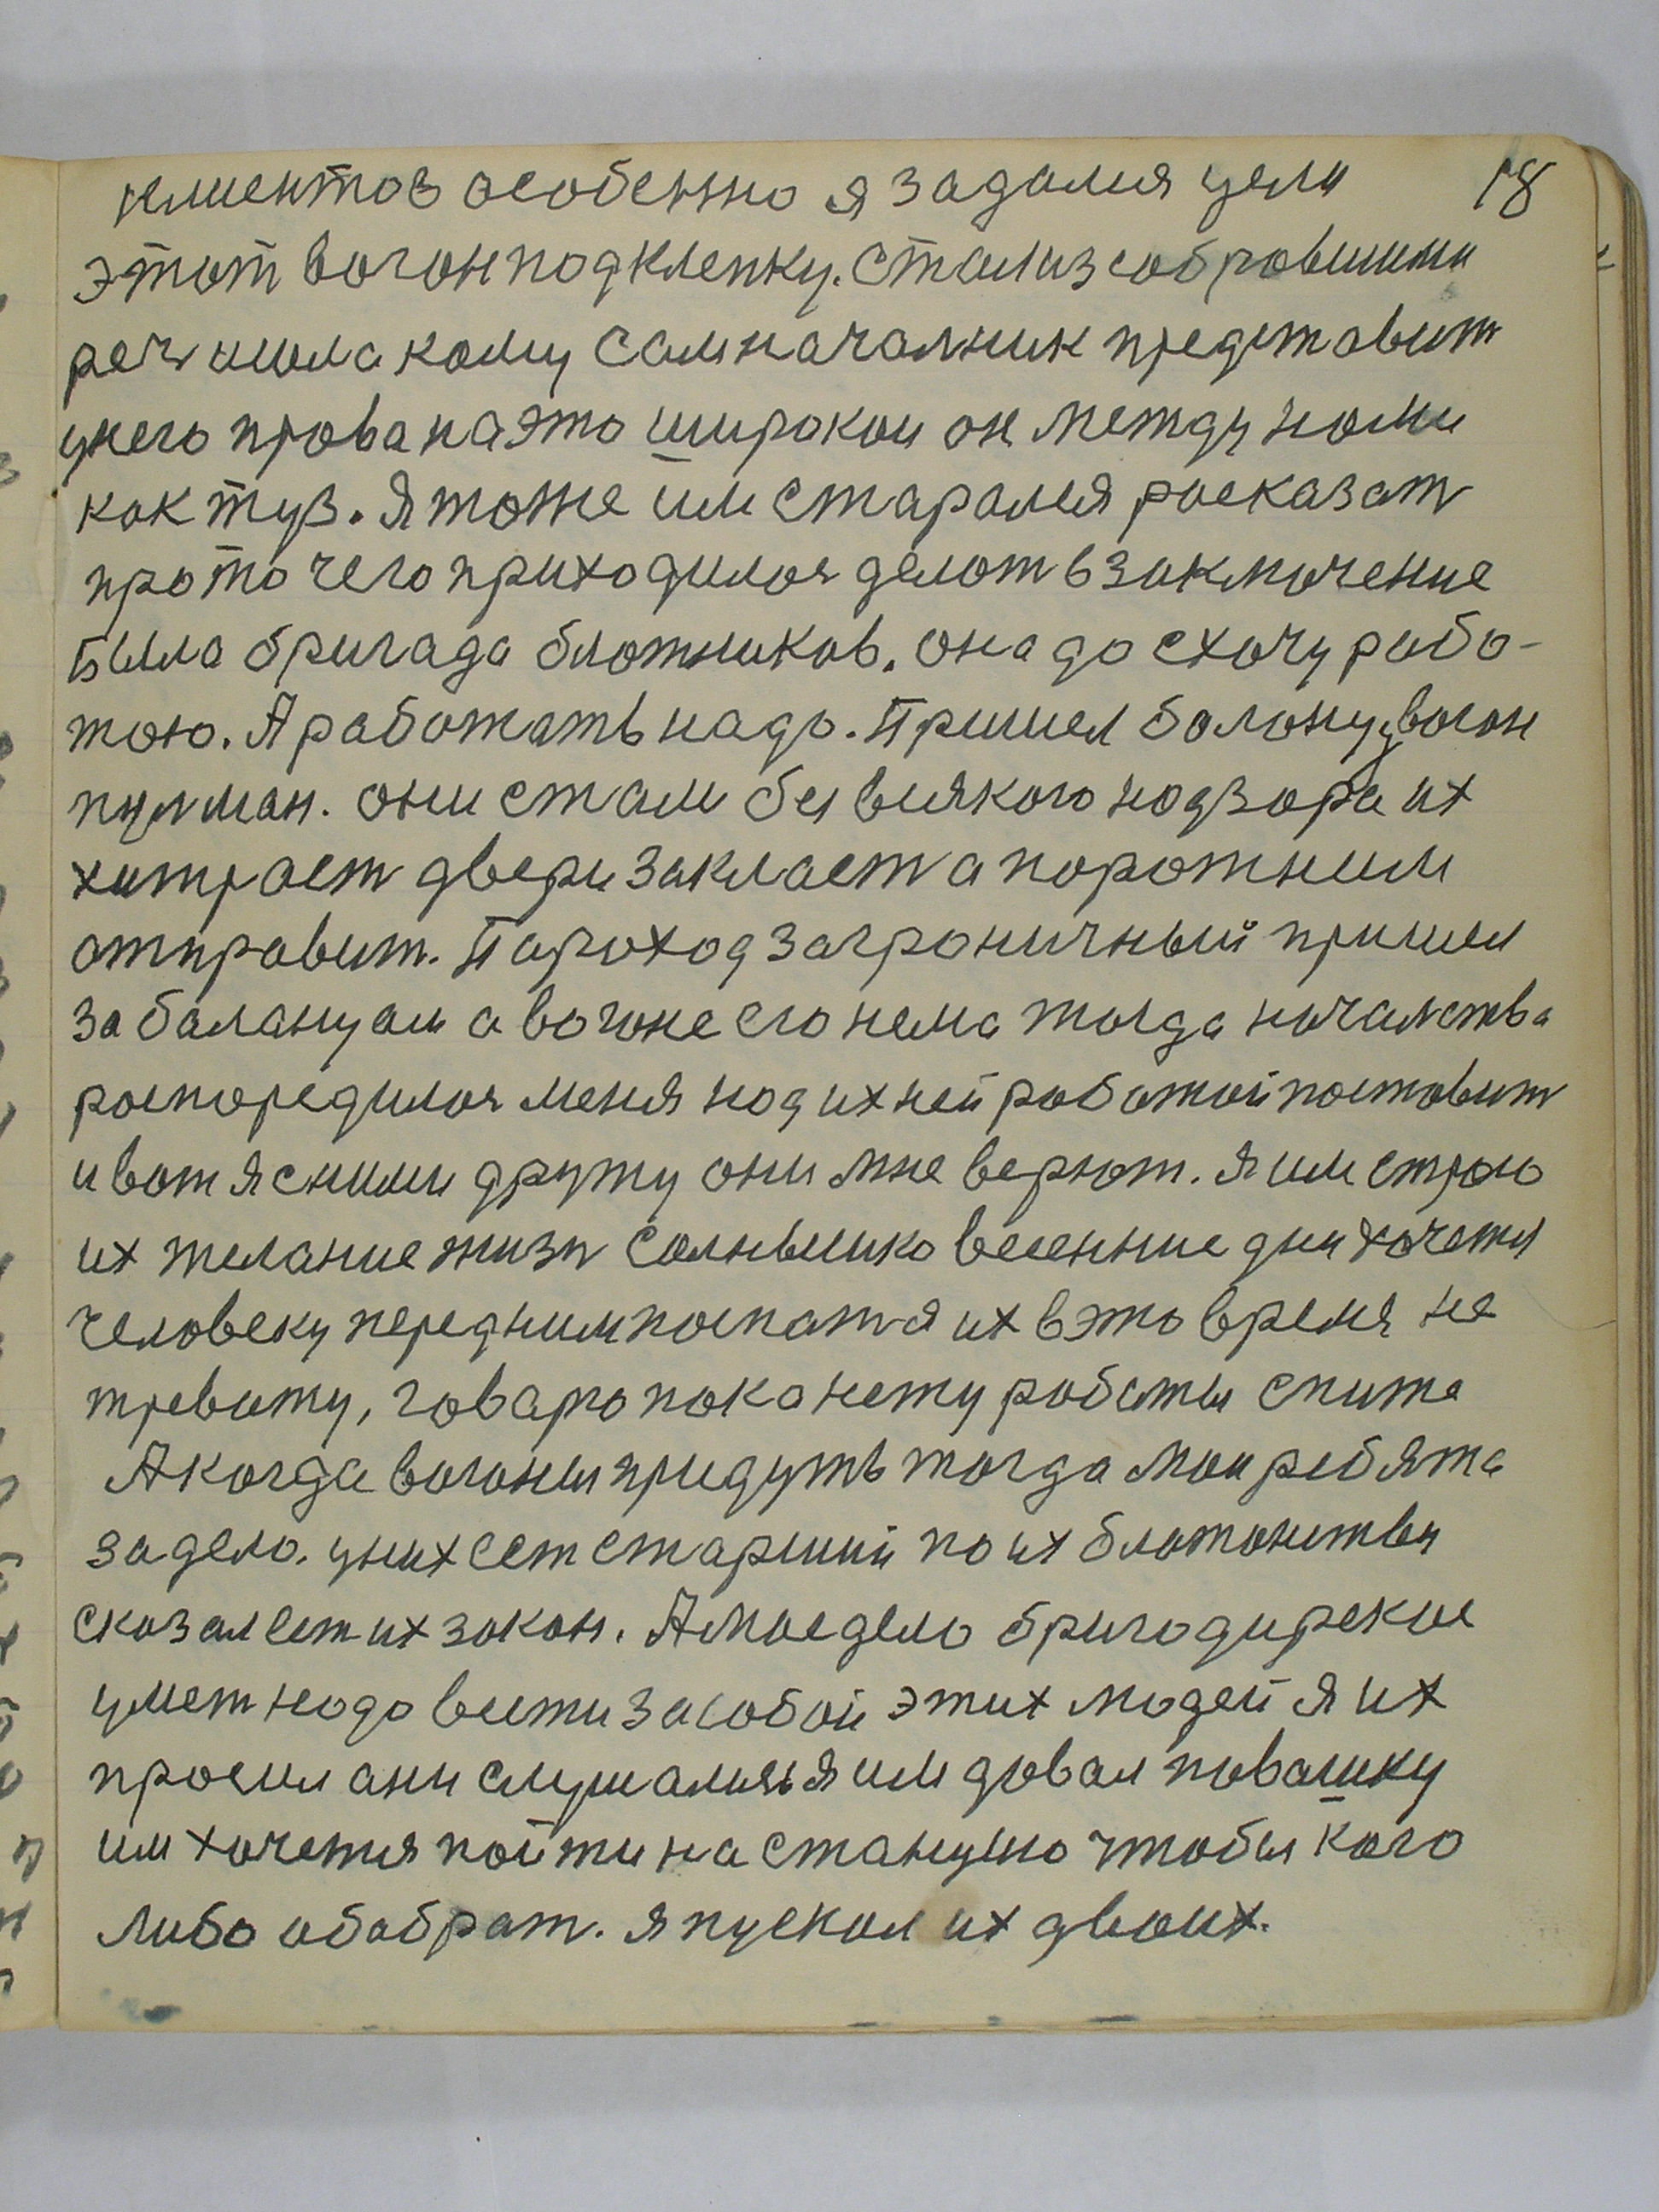 клиентов особенно я задался цели 18
этот вогон подклепку. стали з собровшими
речь шола кому сам началник предстовит
унего прова на это широкои он междуноми
как туз. Я тоже им старался росказат
про то чего приходилос делот в заключение
была бригада блотников. она до схочу рабо-
тою. А работать надо. Пришел болонцу вогон
пулман. они стали без всякого нодзора их
хитраст двери закласт а поротним
отправит. Пароход загроничный пришел
за баланцам а вогоне его нема тогда начальства
роспоредилос меня нод ихней роботой постовит
и вот я сними дружу они мне верют. я им строю
их желание жизн солнышко весенние дни хочется
человеку перед ним поспат я их в это время не
тревожу, говарю пока нету роботы спите
А когда вогоны придуть тогда мои ребята
за дело. у них ест старший по их блотонству
сказал ест их закон. А мое дело бригодирское
умет нодо вести засобой этих людей я их
просил ани слушались я им довал поблашку
им хочется пойти на станцыю чтобы кого
либо обобрат. я пускал их двоих.